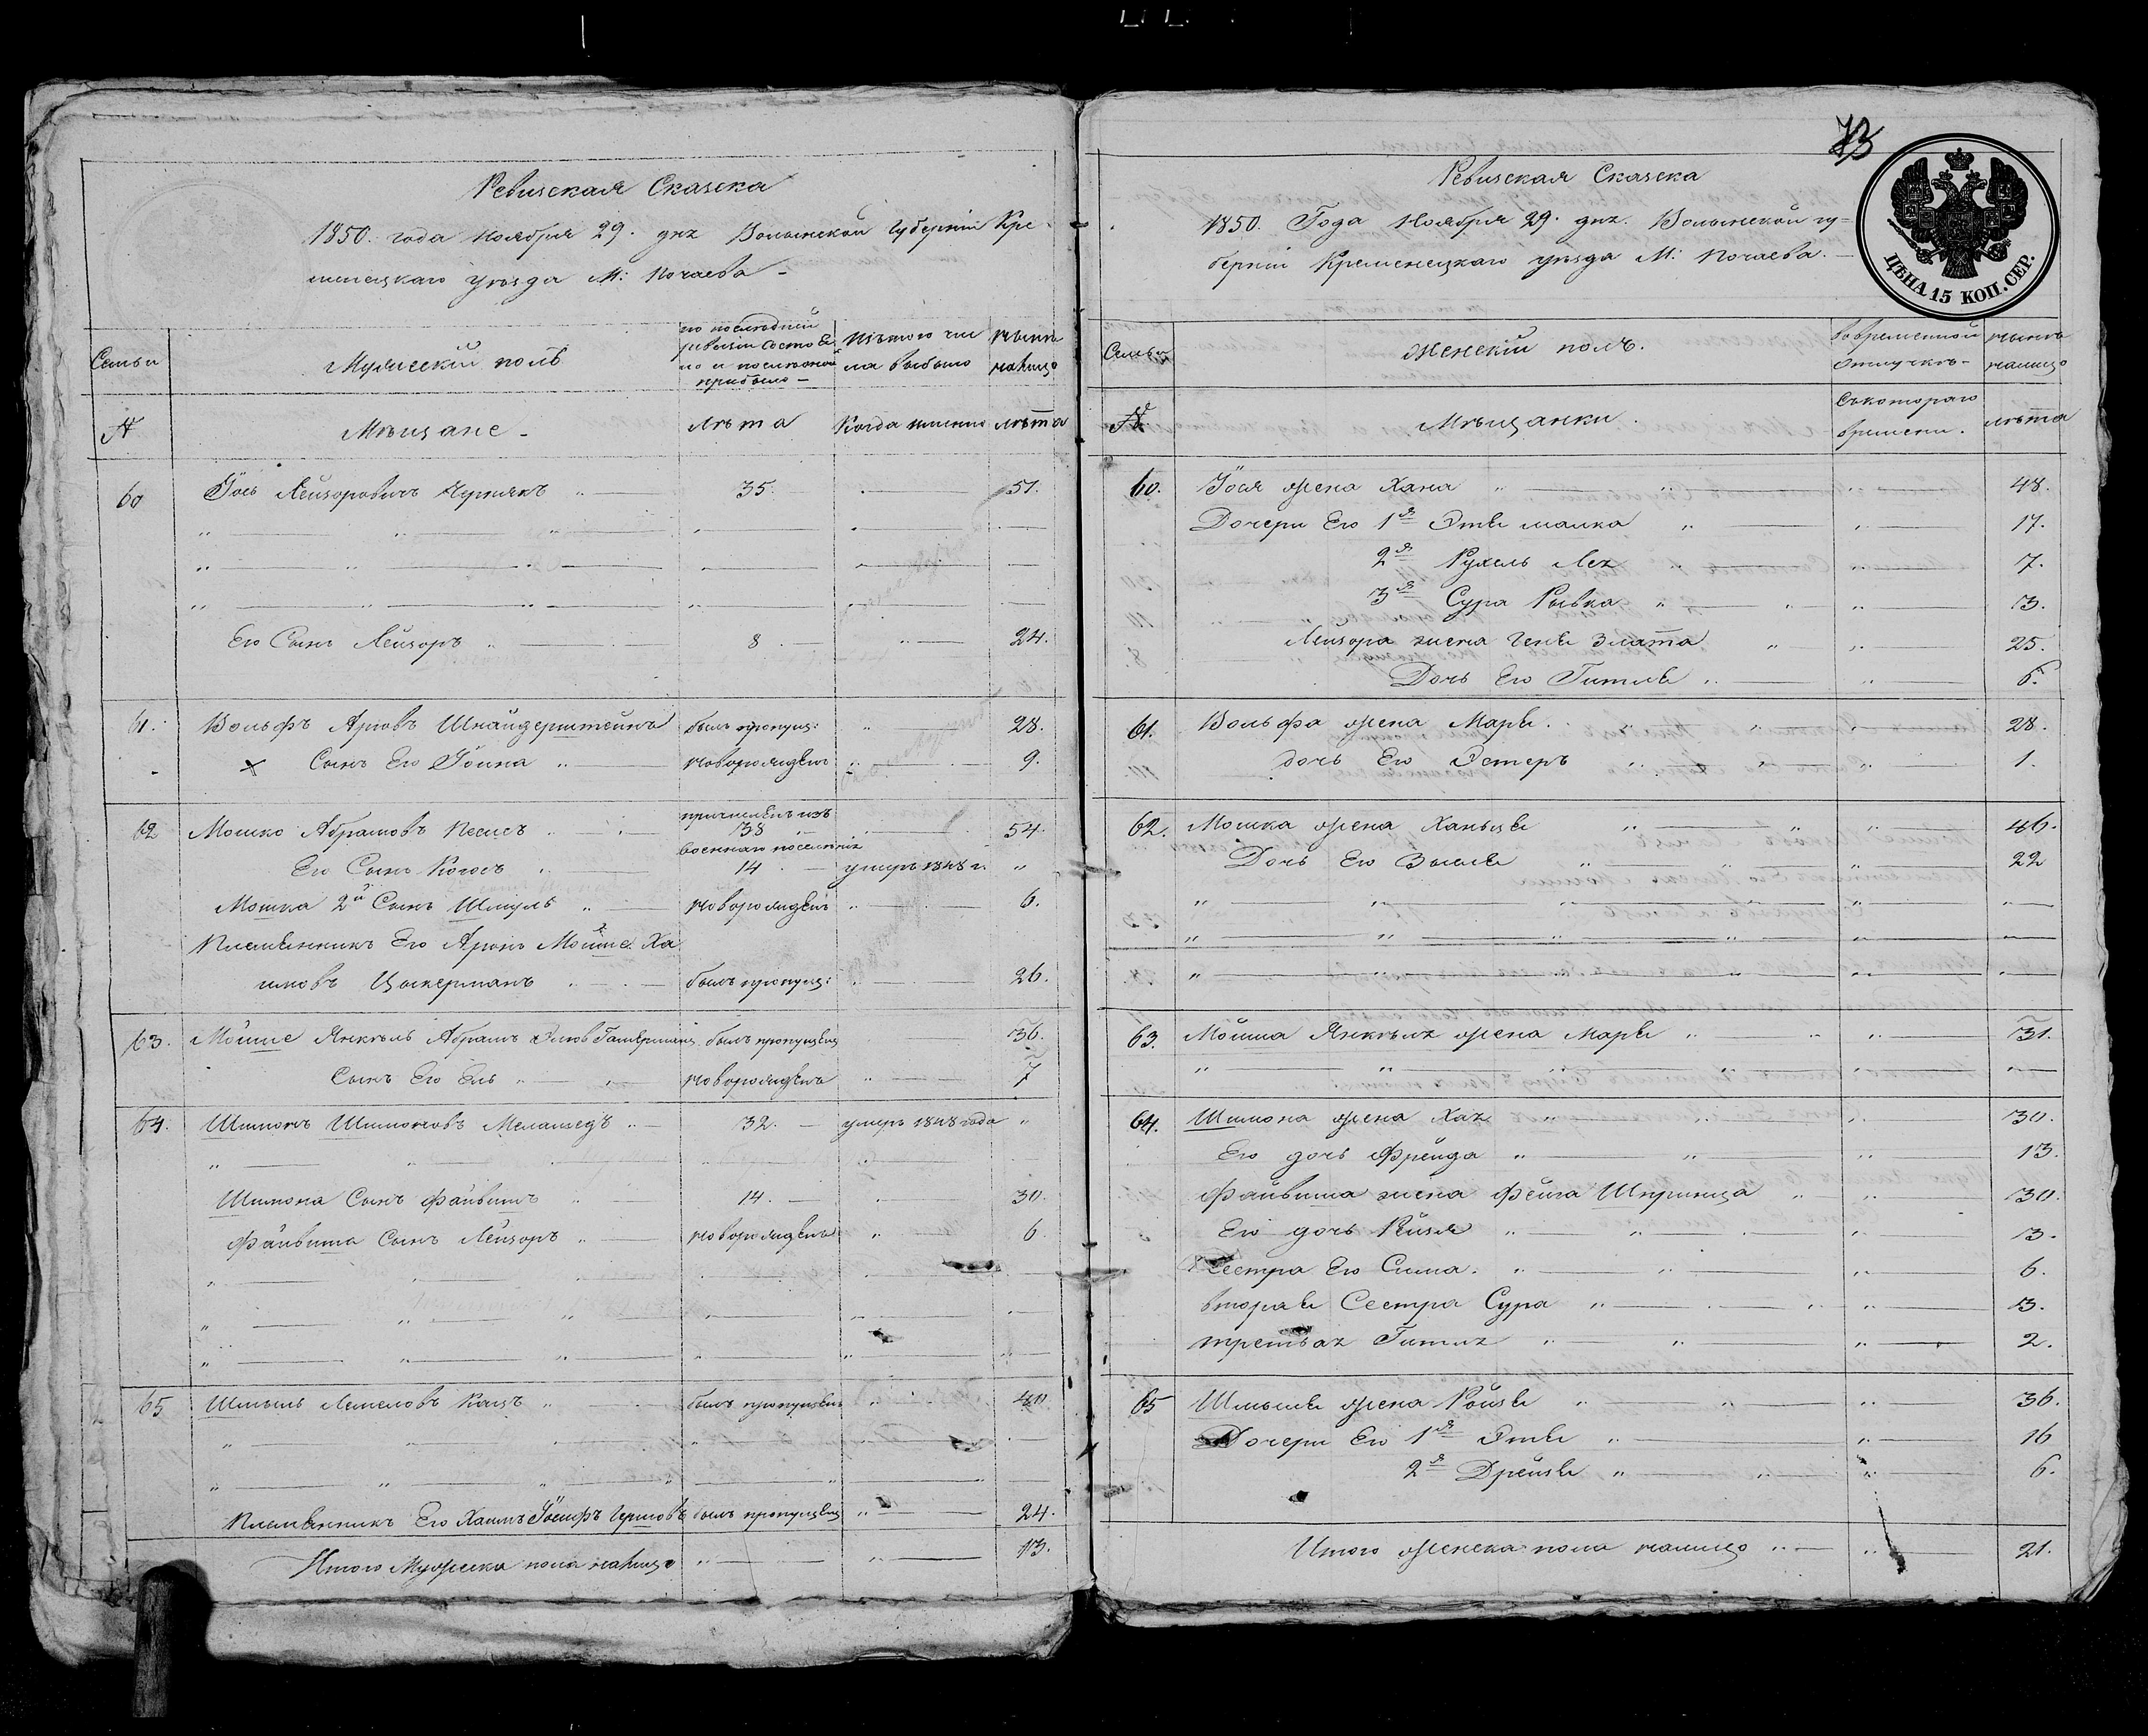 Ревизская Сказка
1850. года Ноября 29. дня Волынской Губерніи Кре-
менецкаго уезда М: Почаева -
Семьи
Мужескій полъ
по последней ревизіи состояло и после оной прибыло -
Изътого числа выбыло
Ныне налицо
№
Мещане -
Лета
Когда именно
Лета
60 Іось Лейзоровичъ Чернякъ " 35. 51.
Его Сынъ Лейзоръ " 8 " 24.
61. Вольфъ Ароновъ Шнайдерштейнъ былъ пропущ: " 28.
х Сынъ Его Іойна " новорожденъ " 9.
62 Мошко Абрамовъ Песисъ причисленъ изъ 38 военнаго поселенія 54.
Его Сынъ 14 умеръ 1848 г. "
Мошка 2й Сынъ Шмуль " новорожденъ " 6.
Племянникъ Его Аронъ Мойше Ха
имовъ Цукерманъ былъ пропущ: " 26.
63. Мойше Янкель Абрамъ былъ пропущенъ 36.
Сынъ Его Ель " новорожденъ " 7
64. Шимонъ Шимоновъ Меламедъ " 32. умеръ 1848 года "
Шимона Сынъ Файвишъ 14. 30.
Файвиша Сынъ Лейзоръ " новорожденъ " 6.
65 Шмыль Кацъ " былъ пропущенъ " 40
Племянникъ Его Хаимъ Іосифъ Гершовъ былъ пропущенъ " 24.
Итого Мужеска пола налицо " " 13.
73
Ревизская Сказка
1850. Года Ноября 29. дня. Волынской гу=
берніи Кременецкаго уезда М: Почаева. -
ЦѢНА 15 КОП. СЕР.
Семьи
Женскій полъ.
Вовременной отлучке -
Ныне налицо
№
Мещанки.
Съкотораго времени.
Лета
60. Іося жена Хана " " " 48.
Дочери Его 1я Этя малка " " 17.
2я Рухель Лея " " 7.
3я Сура Рывка " " 13.
Лейзора жена Геня Злата " " 25.
Дочь Его Гитля " " 6.
61. Вольфа жена Маря. " " 28.
дочь Его Эстеръ " " 1.
62. Мошка жена Ханьця " " " 46.
Дочь Его " " " 22
63. Мойша Янкеля жена Маря " " " 31.
64. Шимона жена Хая " " " 30.
Его дочь Фрейда " " " 13.
Файвиша жена Фейга Шпринца " " 30.
Его дочь Рейзя " " " 3.
Сестра Его Сима. " " " 6.
вторая Сестра Сура " " " 3.
третьая Гитля " " " 2.
65 Шмыля жена Ройзя " " " 36.
Дочери Его 1я Этя " " 16
2я Дрейзя " " " 6.
Итого женска пола налицо " " 21.